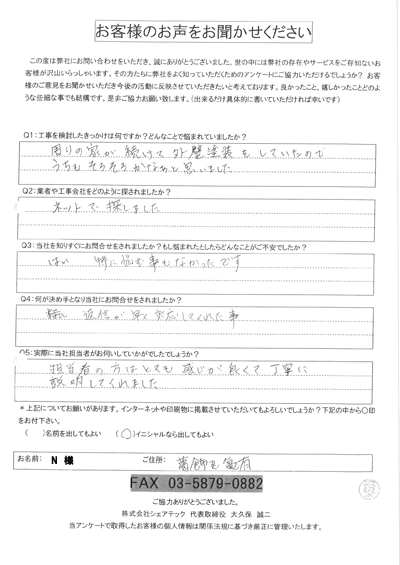 お客様のお声をお聞かせください
この度は弊社にお問い合わせをいただき、誠にありがとうございました。世の中には弊社の存在やサービスをご存知ないお
客様が沢山いらっしゃいます。その方たちに弊社をよく知っていただくためのアンケートにご協力いただけるでしょうか？ お客
様のご意見をお聞かせいただき今後の活動に反映させていただきたいと考えております。良かったこと、嬉しかったことどのよ
うな些細な事でも結構です。是非ご協力お願い致します。(出来るだけ具体的に書いていただければ幸いです)
Q1：工事を検討したきっかけは何ですか？どんなことで悩まれていましたか？
周りの家が続けて外壁塗装をしていたので
うちもそろそろかなぁと思いました
Q2：業者や工事会社をどのように探されましたか？
ネットで探しました
Q3：当社を知りすぐにお問合せをされましたか？もし悩まれたとしたらどんなことがご不安でしたか？
はい 特に悩む事もなかったです
Q4：何が決め手となり当社にお問合せをされましたか？
返信が早く対応してくれた事
Q5：実際に当社担当者がお伺いしていかがでしたでしょうか？
担当者の方はとても感じが良くて丁寧に
説明してくれました
＊上記についてお願いがあります。インターネットや印刷物に掲載させていただいてもよろしいでしょうか？下記の中から〇印
をお付下さい。
( )名前を出してもよい (〇)イニシャルなら出してもよい
お名前： N 様 ご住所： 葛飾区亀有
FAX 03-5879-0882
ご協力ありがとうございました。
株式会社シェアテック 代表取締役 大久保 誠二
当アンケートで取得したお客様の個人情報は関係法規に基づき厳正に管理いたします。